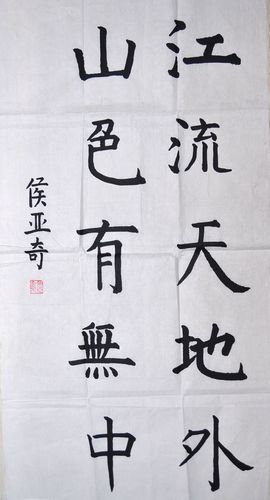 江流天地外
山色有無中
侯亚奇